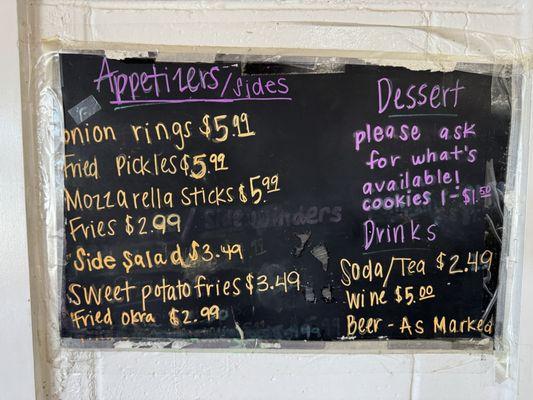 Appetizers/sides
onion rings $5.99
Fried Pickles $5.99
Mozzarella sticks $5.99
Fries $2.99
Side Winders
Side Salad $3.49
Sweet potato fries $3.49
Fried okra $2.99
Dessert
please ask
for what's
available!
cookies 1-$1.50
Drinks
Soda/Tea $2.49
Wine $5.00
Beer - As Marked